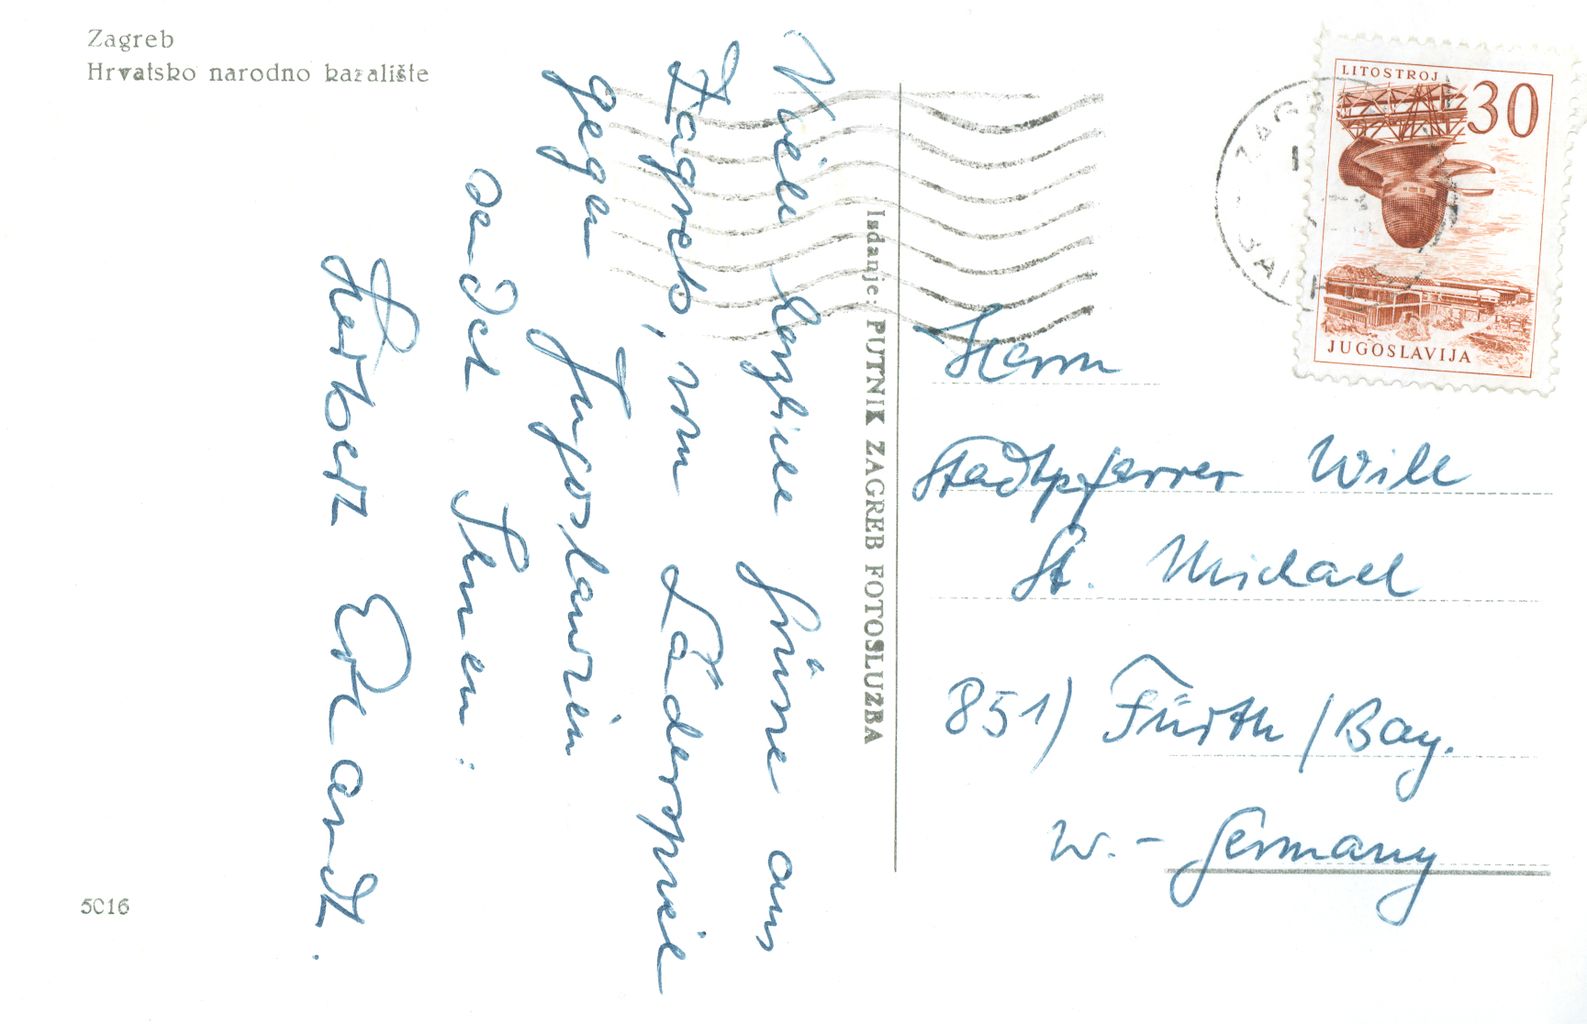 Zagreb
Hrvatsko narodno kazalište
Viele herzliche Grüße aus
Zagreb, vom Länderspiel
gegen Jugoslawien
sendet Ihnen:
Herbert Erhardt.
Izdanje: PUTNIK ZAGREB FOTOSLUŽBA
5016
LITOSTROJ
30
JUGOSLAVIJA
ZAGREB
Herrn
Stadtpfarrer Will
St. Michael
851) Fürth/Bay.
W.- Germany